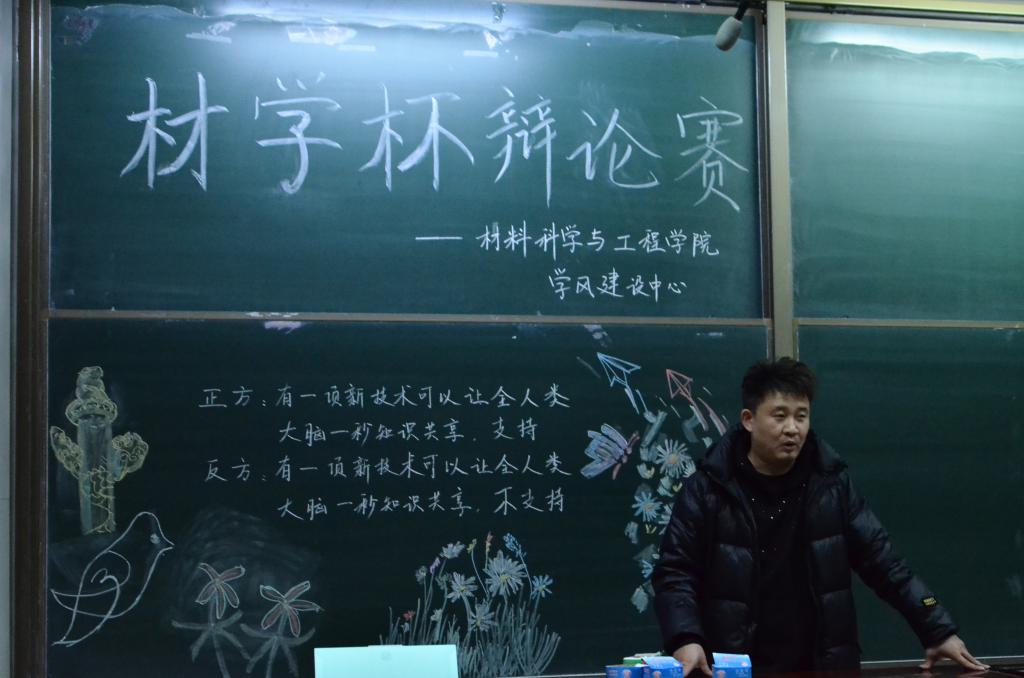 材学杯辩论赛
——材料科学与工程学院
学风建设中心
正方：有一项新技术可以让全人类
大脑一秒知识共享，支持
反方：有一项新技术可以让全人类
大脑一秒知识共享，不支持